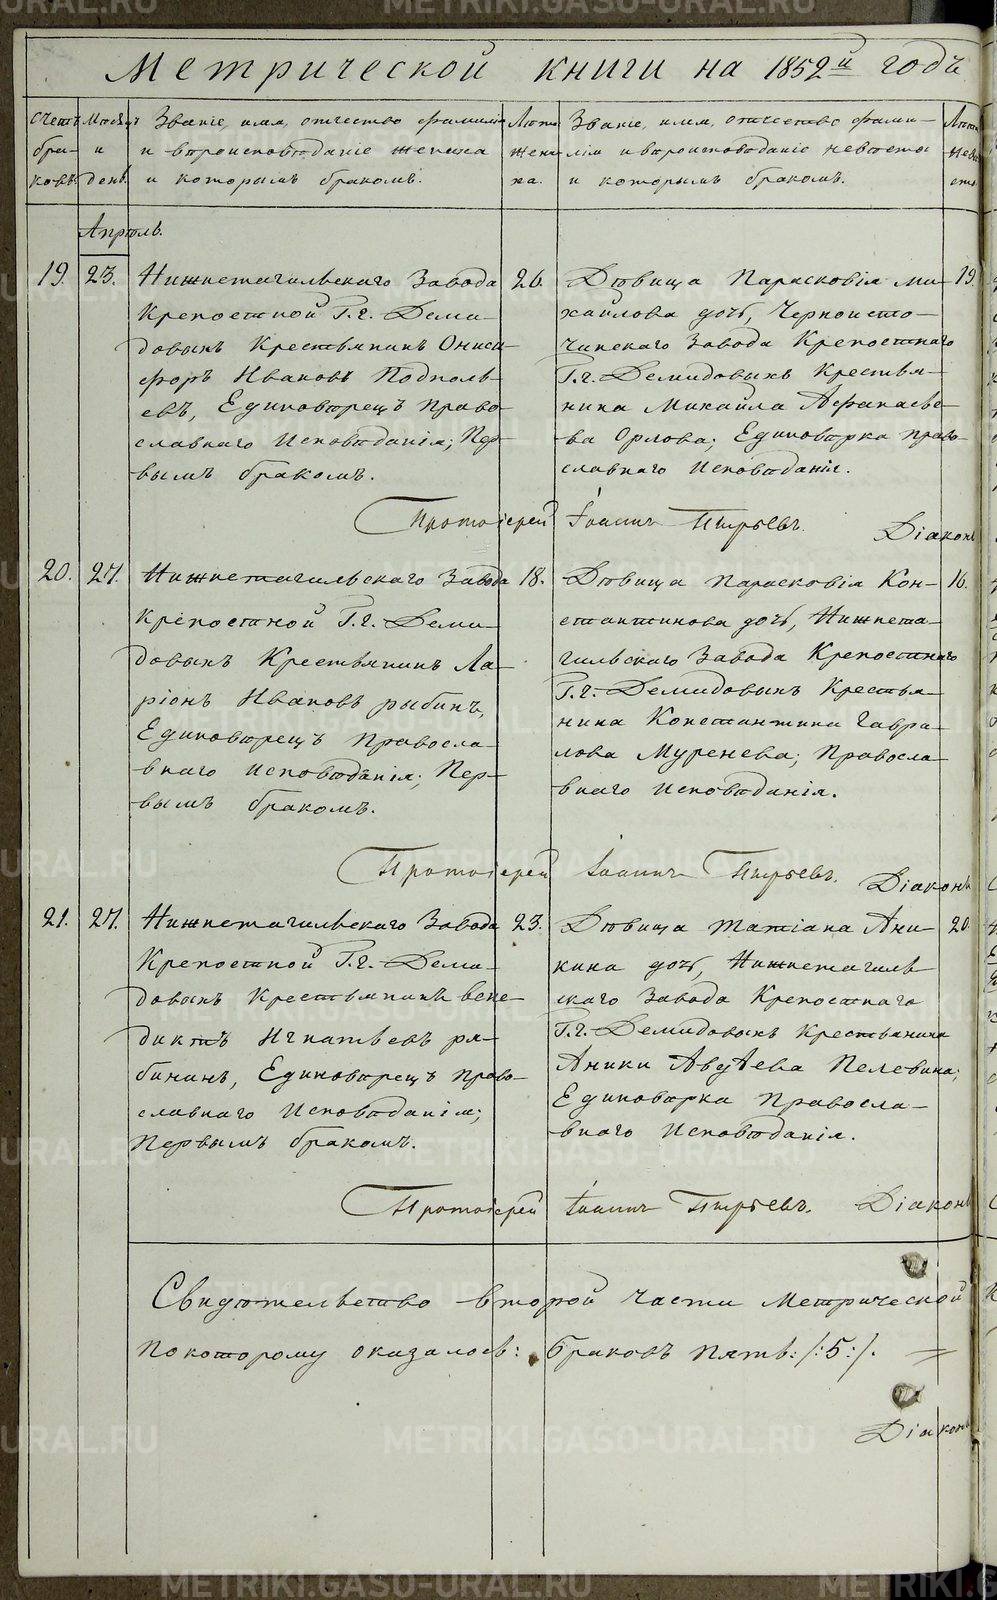 Метрической книги на 1852й годъ
Счетъ браковъ.
Месяцъ и день.
Званіе, имя, отчество фамилію
и вѣроисповѣданіе жениха
и которымъ бракомъ.
Лѣта жениха.
Званіе, имя, отчество фами-
лію и вѣроисповѣданіе невѣсты
и которымъ бракомъ.
Апрѣль.
19. 23.
Нижнетагильскаго Завода
Крепостной Г.г. Деми-
довыхъ Крестьянинъ Ониси-
форъ Ивановъ Подполь-
евъ, Единоверецъ право-
славнаго Исповѣданія; Пер-
вымъ бракомъ.
26.
Дѣвица Парасковія Ми-
хайлова дочь, Черноисто-
чинскаго Завода Крепостнаго
Г.г. Демидовыхъ Крестья-
нина Михайла Афанасье-
ва Орлова; Единоверка право-
славнаго Исповѣданія.
19.
Протоіерей Іоаннъ Пырьевъ. Діаконъ
20. 27.
Нижнетагильскаго Завода
Крепостной Г.г. Деми-
довыхъ Крестьянинъ Ла-
ріонъ Ивановъ рыбинъ,
Единоверецъ Правосла-
внаго Исповѣданія; Пер-
вымъ бракомъ.
18.
Дѣвица Парасковія Кон-
стантинова дочь, Нижнета-
гильскаго Завода Крепостнаго
Г.г. Демидовыхъ Крестья-
нина Константина Гаври-
лова Муренева; Правосла-
внаго Исповѣданія.
16.
Протоіерей Іоаннъ Пырьевъ. Діаконъ
21. 27.
Нижнетагильскаго Завода
Крепостной Г.г. Деми-
довыхъ Крестьянинъ Вене-
диктъ Игнатьевъ ря-
бининъ, Единоверецъ право-
славнаго Исповѣданія;
Первымъ бракомъ.
23.
Дѣвица Татіана Ани-
кина дочь, Нижнетагиль-
скаго Завода Крепостнаго
Г.г. Демидовыхъ Крестьянина
Аники Авдѣева Пелевина;
Единоверка Правосла-
внаго Исповѣданія.
20.
Протоіерей Іоаннъ Пырьевъ. Діаконъ
Свидѣтельство второй части Метрической
по которому оказалось: браковъ пять: /:5:/.
Діаконъ
METRIKI.GASO-URAL.RU